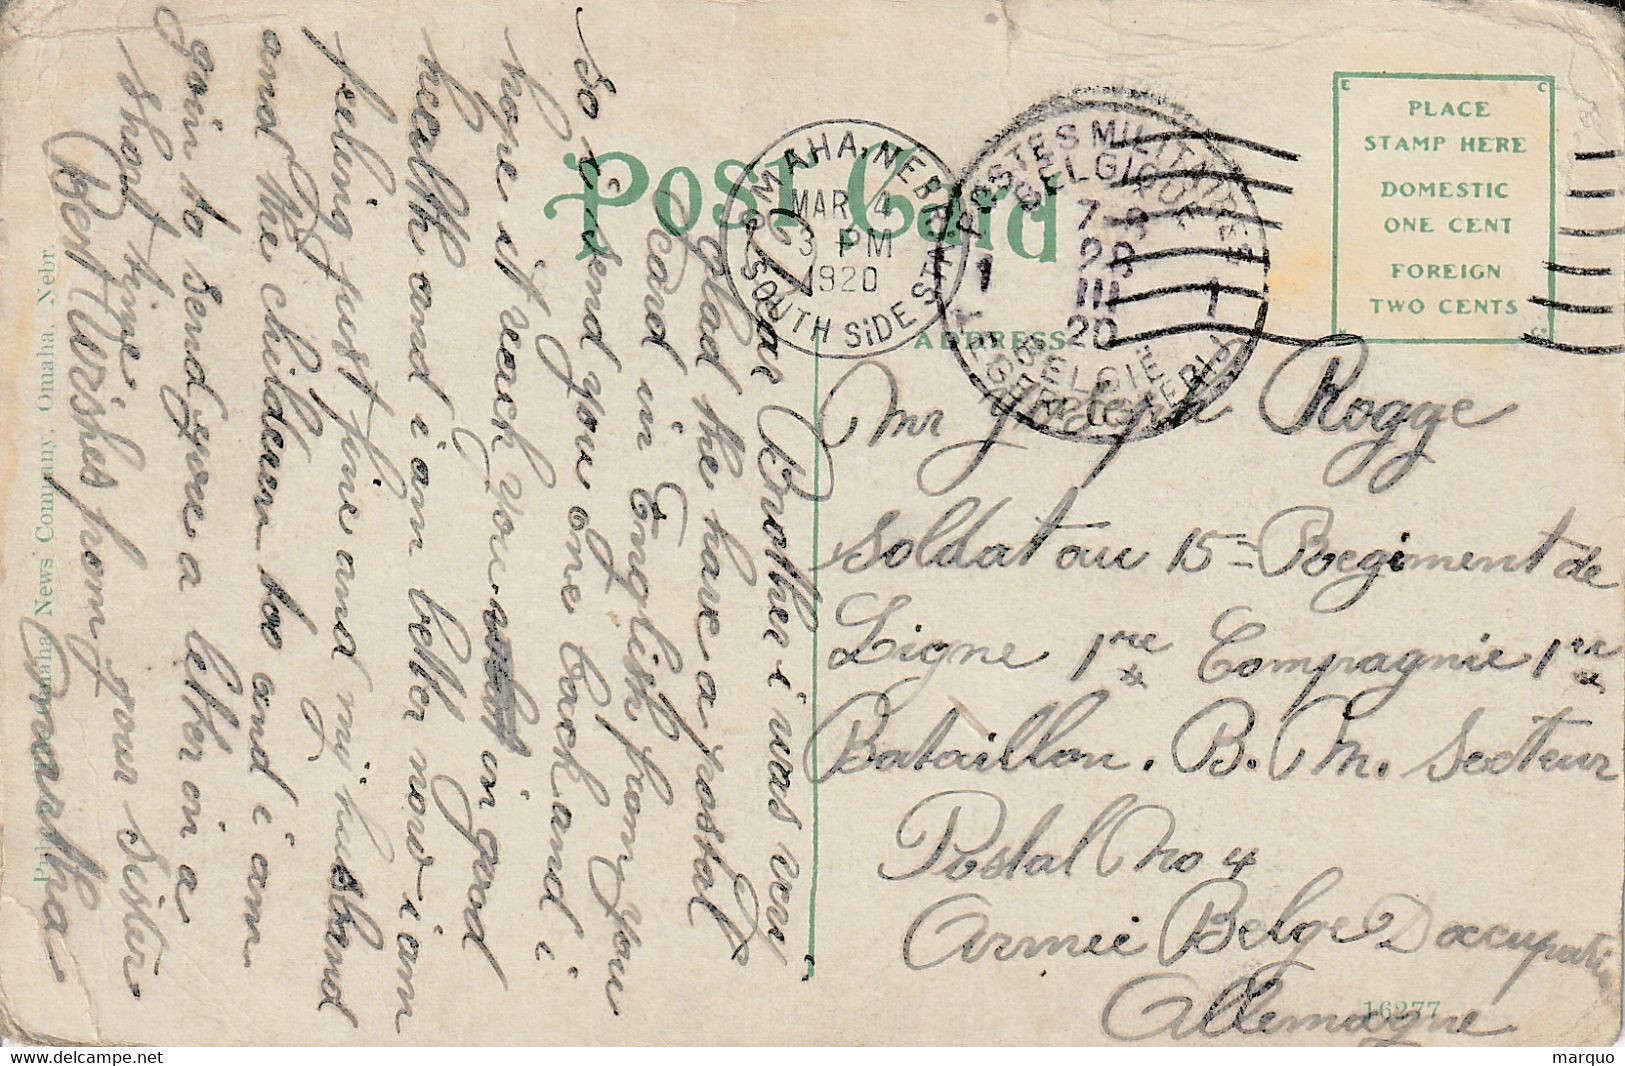 Post Card
OMAHA, NEBR.
MAR 4
3 PM
1920
SOUTH SIDE STA.
POSTES MILITAIRES
BELGIQUE
7-8
1 28 1
III
20
BELGIE
LEGERPOSTERIJ
E C
PLACE
STAMP HERE
DOMESTIC
ONE CENT
FOREIGN
TWO CENTS
ADDRESS
Dear Brother i was very
glad the have a postal
card in English from you
So i send you one back and i
hope it reach you in good
health and i am better now i am
feeling just fine and my husband
and the children too and i am
goin to send you a letter in a
short time
Best Wishes from your sister
Omartha
Pub. by Omaha News Company, Omaha, Nebr.
Mr Joseph Rogge
Soldat au 15= Regiment de
Ligne 1re Compagnie 1er
Bataillon. B. M. Secteur
Postal No 4
Armée Belge Doccupation
Allemagne
16277
marquo